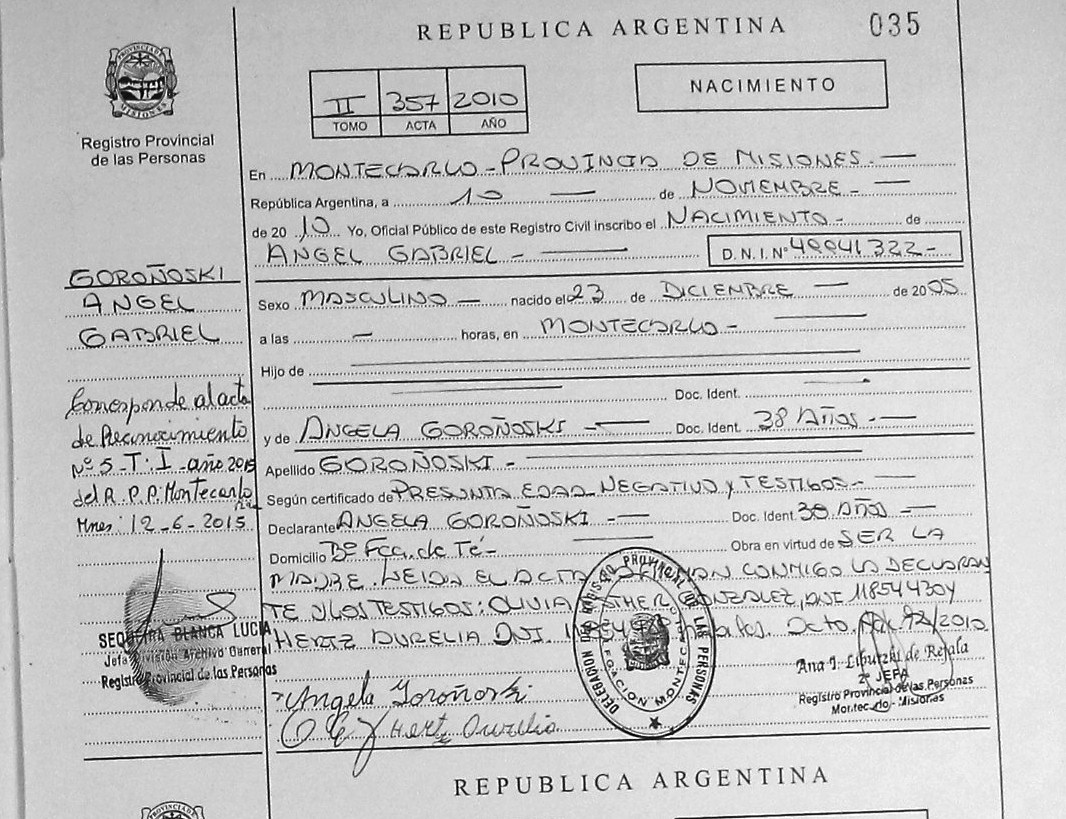 REPUBLICA ARGENTINA
035
PROVINCIA DE MISIONES
Registro Provincial
de las Personas
II 357 2010
TOMO ACTA AÑO
NACIMIENTO
En MONTECARLO - PROVINCIA DE MISIONES. —
República Argentina, a 10 — de NOVIEMBRE - —
de 20 10 Yo, Oficial Público de este Registro Civil inscribo el NACIMIENTO - de
ANGEL GABRIEL - — D. N. I. Nº
Sexo MASCULINO — nacido el 23 de DICIEMBRE — de 20 05
a las — horas, en MONTECARLO - —
Hijo de
Doc. Ident. —
y de ANGELA GOROÑOSKI - — Doc. Ident. 38 AÑOS - —
Apellido GOROÑOSKI - —
Según certificado de PRESUNTA EDAD NEGATIVO Y TESTIGOS - —
Declarante ANGELA GOROÑOSKI - — Doc. Ident. 38 AÑOS - —
Domicilio Bº Fca. de Té - — Obra en virtud de SER LA
MADRE. LEIDA EL ACTA CONMIGO LA DECLARAN
TE Y LOS TESTIGOS: OLIVIA ESTHER GONZALEZ, DNI 11854430
HERTZ AURELIA DNI.
Angela Goroñoski
Hertz Aurelia
Ana I. Liputzki de Refala
2ª JEFA
Registro Provincial de las Personas
Montecarlo - Misiones
DELEGACION DEL REGISTRO PROVINCIAL DE LAS PERSONAS
DELEGACION MONTECARLO
GOROÑOSKI
ANGEL
GABRIEL
Corresponde al acta
de Reconocimiento
Nº 5 - T: I - año 2015
del R. P. P. Montecarlo
Mnes: 12-6-2015
SEQUEIRA BLANCA LUCIA
Jefa División Archivo General
Registro Provincial de las Personas
REPUBLICA ARGENTINA
PROVINCIA DE